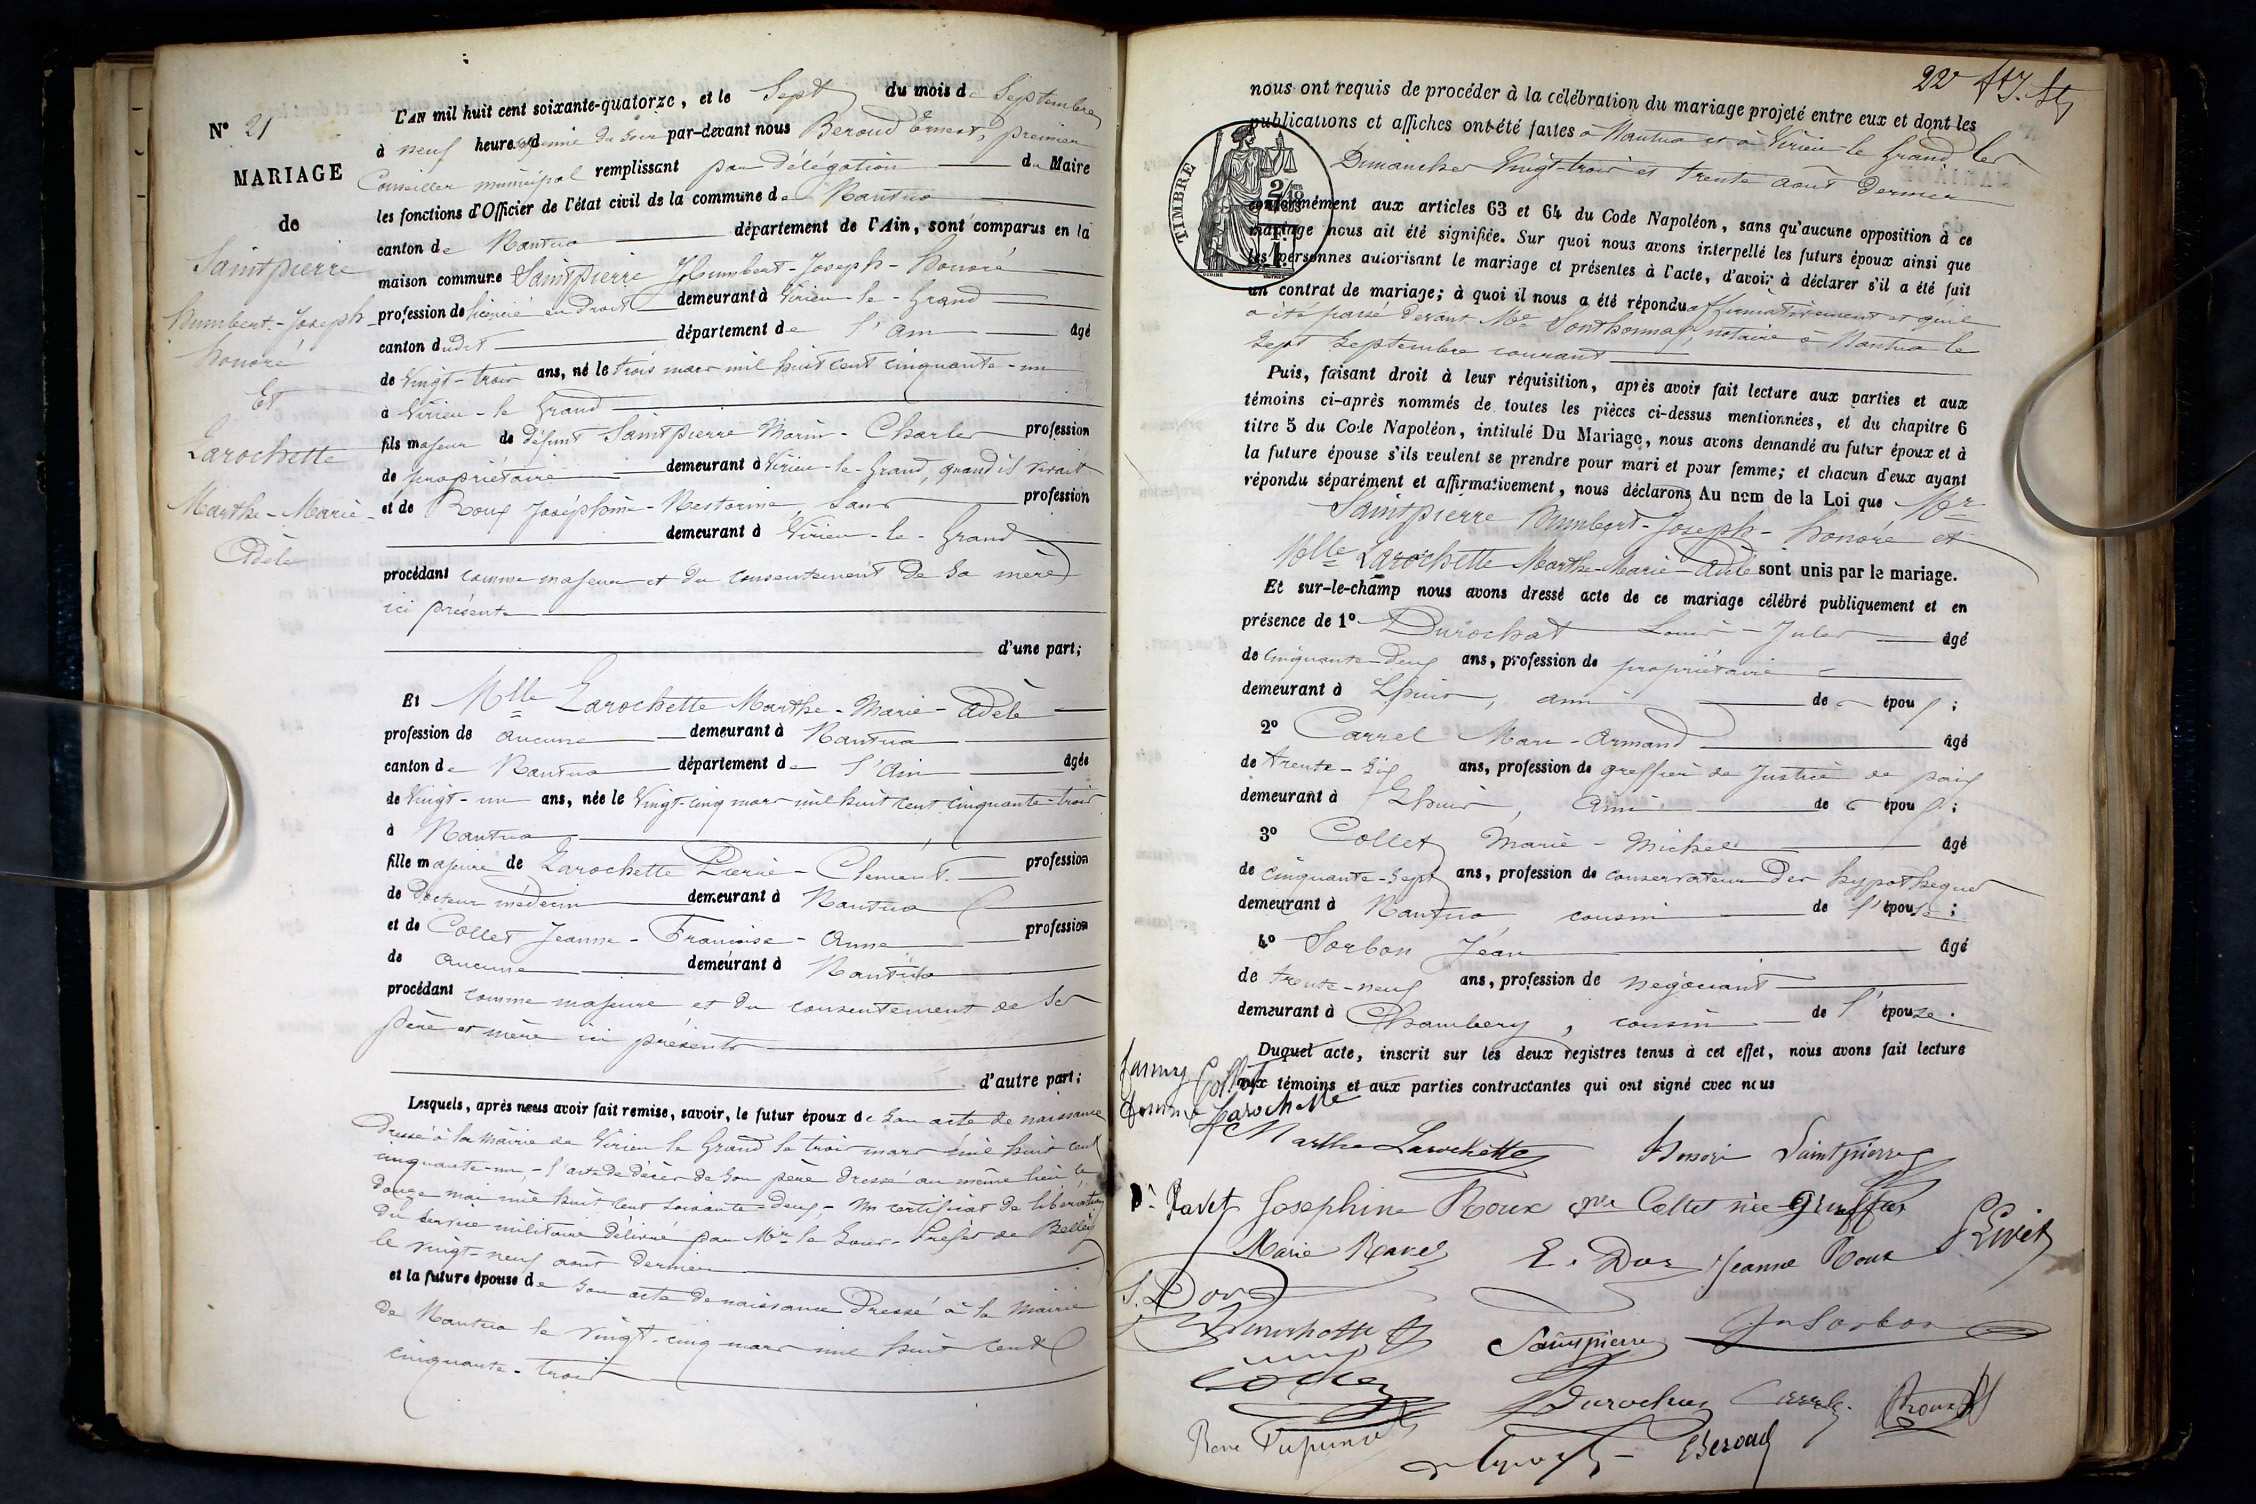 N° 21
MARIAGE
de
Saintpierre
Humbert-Joseph
honoré
Et
Larochette
Marthe-Marie-
Adèle
L'AN mil huit cent soixante-quatorze, et le Sept du mois de Septembre
à neuf heures & demie du soir par-devant nous Beroud Ernest, premier
Conseiller municipal remplissant par délégation du Maire
les fonctions d'Officier de l'état civil de la commune de Nantua
canton de Nantua département de l'Ain, sont comparus en la
maison commune Saintpierre Humbert-Joseph-honoré
profession de licencié en Droit demeurant à Virieu-le-Grand
canton dudit département de l'Ain âgé
de Vingt-trois ans, né le trois mars mil huit cent cinquante-un
à Virieu-le Grand
fils majeur de défunt Saintpierre Marin-Charles profession
de propriétaire demeurant à Virieu-le-Grand, quand il vivait
et de Roux Joséphine-Nestorine, sans profession
demeurant à Virieu-le-Grand
procédant comme majeur et du consentement de sa mère
ici présente
d'une part;
Et Mlle Larochette Marthe-Marie-Adèle
profession de aucune demeurant à Nantua
canton de Nantua département de l'Ain âgée
de Vingt-un ans, née le Vingt-cinq mars mil huit cent cinquante-trois
à Nantua
fille majeure de Larochette Pierre-Clément profession
de Docteur médecin demeurant à Nantua
et de Collet Jeanne-Françoise-Anne profession
de aucune demeurant à Nantua
procédant comme majeure et du consentement de ses
père et mère ici présents
d'autre part;
Lesquels, après nous avoir fait remise, savoir, le futur époux de son acte de naissance
dressé à la mairie de Virieu le Grand le trois mars mil huit cent
cinquante-un,- l'acte de décès de son père dressé au même lieu le
douze mai mil huit cent soixante-deux- Un certificat de libération
du service militaire délivré par Mr le Sous-Préfet de Belley
le vingt-neuf août dernier
et la future épouse de son acte de naissance dressé à la Mairie
de Nantua le vingt-cinq mars mil huit cent
cinquante-trois
22
nous ont requis de procéder à la célébration du mariage projeté entre eux et dont les
publications et affiches ont été faites à Nantua et à Virieu-le Grand les
Dimanches Vingt-trois et trente août dernier
TIMBRE
conformément aux articles 63 et 64 du Code Napoléon, sans qu'aucune opposition à ce
mariage nous ait été signifiée. Sur quoi nous avons interpellé les futurs époux ainsi que
les personnes autorisant le mariage et présentes à l'acte, d'avoir à déclarer s'il a été fait
un contrat de mariage; à quoi il nous a été répondu affirmativement et qu'il
a été passé devant Me Sonthonnax, notaire à Nantua le
Sept Septembre courant
Puis, faisant droit à leur réquisition, après avoir fait lecture aux parties et aux
témoins ci-après nommés de toutes les pièces ci-dessus mentionnées, et du chapitre 6
titre 5 du Code Napoléon, intitulé Du Mariage, nous avons demandé au futur époux et à
la future épouse s'ils veulent se prendre pour mari et pour femme; et chacun d'eux ayant
répondu séparément et affirmativement, nous déclarons Au nom de la Loi que Mr
Saintpierre Humbert-Joseph-honoré et
Mlle Larochette Marthe-Marie-Adèle sont unis par le mariage.
Et sur-le-champ nous avons dressé acte de ce mariage célébré publiquement et en
présence de 1° Durochat Louis-Jules âgé
de cinquante-deux ans, profession de propriétaire
demeurant à Lhuis, ami de époux;
2° Carrel Marc-Armand âgé
de trente-six ans, profession de greffier de Justice de paix
demeurant à Lhuis, ami de époux;
3° Collet Marie-Michel âgé
de cinquante-sept ans, profession de conservateur des hypothèques
demeurant à Nantua cousin de l'épouse;
4° Sorbon Jean âgé
de trente-neuf ans, profession de négociant
demeurant à Chambery, cousin de l'épouse.
Duquel acte, inscrit sur les deux registres tenus à cet effet, nous avons fait lecture
aux témoins et aux parties contractantes qui ont signé avec nous
Fanny Collet
femme Larochette
Marthe Larochette Honoré Saintpierre
Dr Ravet Josephine Roux Collet née
Marie Ravet E. Dor Jeanne Roux
S. Dor
Larochette Saintpierre Jn Sorbon
Collet Durochat Carrel Roux
EBeroud